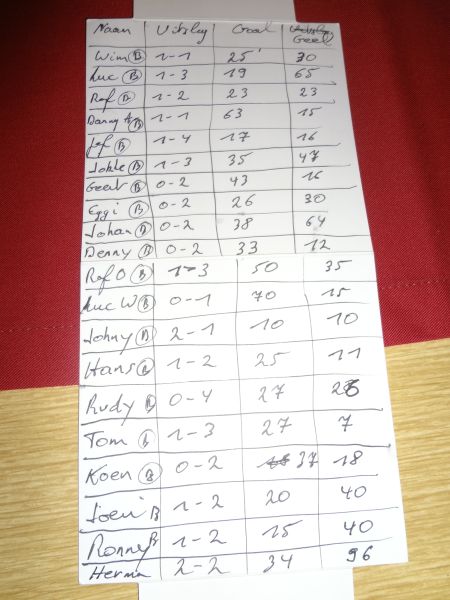 Naam Uitslag Goal Geel
Wim B 1-1 25' 30
Luc B 1-3 19 65
Raf B 1-2 23 23
Danny B 1-1 63 15
Jef B 1-4 17 16
B 1-3 35 47
Geert B 0-2 43 16
Eggi B 0-2 26 30
Johan B 0-2 38 64
Denny B 0-2 33 12
Raf O B 1-3 50 35
Luc W B 0-1 70 15
Johny B 2-1 10 10
Hans B 1-2 25 11
Rudy B 0-4 27
Tom B 1-3 27 7
Koen B 0-2 37 18
Joeri B 1-2 20 40
Ronny B 1-2 15 40
Herma 2-2 34 96